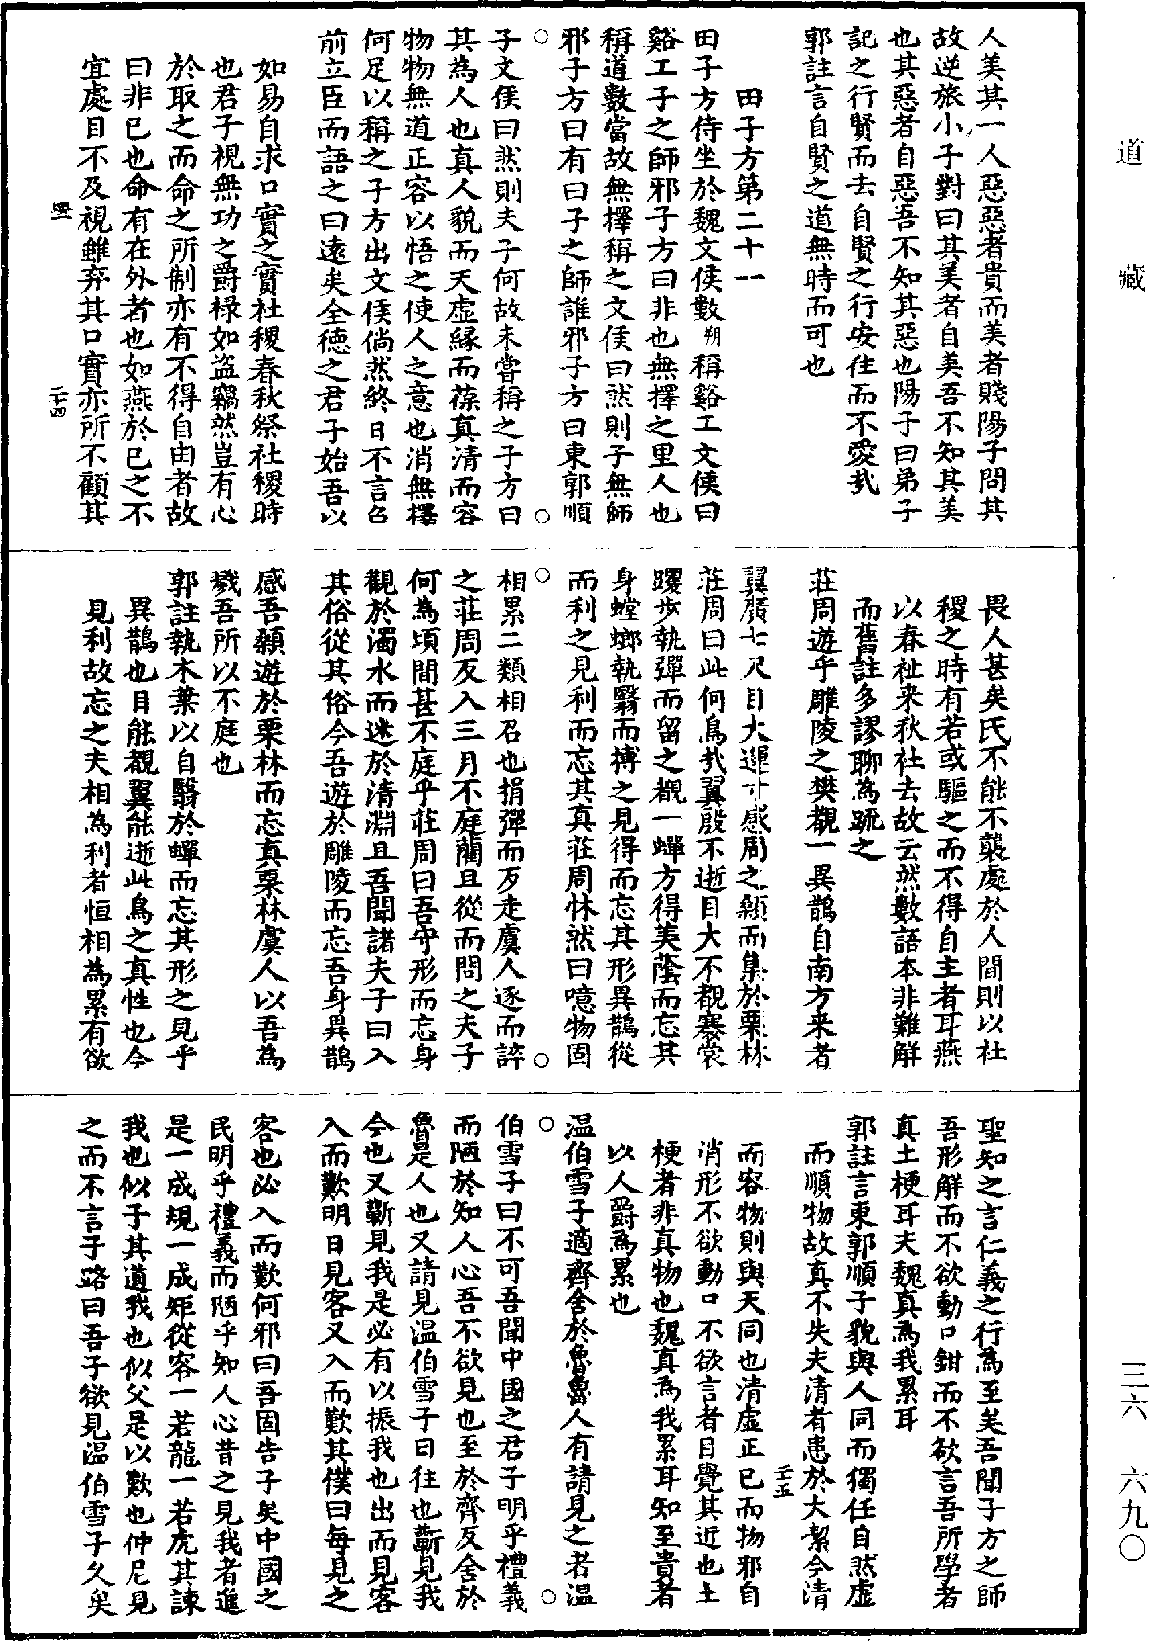 道藏
三六 六九〇
人美其一人惡惡者貴而美者賤陽子問其
故逆旅小子對曰其美者自美吾不知其美
也其惡者自惡吾不知其惡也陽子曰弟子
記之行賢而去自賢之行安往而不愛哉
郭註言自賢之道無時而可也
田子方第二十一
田子方侍坐於魏文侯數朔稱谿工文侯曰
谿工子之師邪子方曰非也無擇之里人也
稱道數當故無擇稱之文侯曰然則子無師
邪子方曰有曰子之師誰邪子方曰東郭順
子文侯曰然則夫子何故未嘗稱之子方曰
其為人也真人貌而天虛緣而葆真清而容
物物無道正容以悟之使人之意也消無擇
何足以稱之子方出文侯倘然終日不言召
前立臣而語之曰遠矣全德之君子始吾以
如易自求口實之實社稷春秋祭社稷時
也君子視無功之爵祿如盜竊然豈有心
於取之而命之所制亦有不得自由者故
曰非已也命有在外者也如燕於已之不
宜處目不及視雖弃其口實亦所不顧其
四二 二十四
畏人甚矣氏不能不襲處於人間則以社
稷之時有若或驅之而不得自主者耳燕
以春社来秋社去故云然數語本非難解
而舊註多謬聊為䟽之
莊周遊乎雕陵之樊覩一異鵲自南方来者
翼廣七尺目大運寸感周之顙而集於栗林
莊周曰此何鳥哉翼殷不逝目大不覩蹇裳
躩步執彈而留之覩一蟬方得美蔭而忘其
身螳螂執翳而搏之見得而忘其形異鵲從
而利之見利而忘其真莊周怵然曰噫物固
相累二類相召也捐彈而反走虞人逐而誶
之莊周反入三月不庭藺且從而問之夫子
何為頃間甚不庭乎莊周曰吾守形而忘身
觀於濁水而迷於清淵且吾聞諸夫子曰入
其俗從其俗今吾遊於雕陵而忘吾身異鵲
感吾顙遊於栗林而忘真栗林虞人以吾為
戮吾所以不庭也
郭註執木葉以自翳於蟬而忘其形之見乎
異鵲也目能覩翼能逝此鳥之真性也今
見利故忘之夫相為利者恒相為累有欲
聖知之言仁義之行為至矣吾聞子方之師
吾形解而不欲動口鉗而不欲言吾所學者
真土梗耳夫魏真為我累耳
郭註言東郭順子貌與人同而獨任自然虛
而順物故真不失夫清者患於大絜今清
二十五
而容物則與天同也清虛正己而物邪自
消形不欲動口不欲言者目覺其近也土
梗者非真物也魏真為我累耳知至貴者
以人爵為累也
温伯雪子適齊舍於魯魯人有請見之者温
伯雪子曰不可吾聞中國之君子明乎禮義
而陋於知人心吾不欲見也至於齊反舍於
魯是人也又請見温伯雪子曰往也蘄見我
今也又蘄見我是必有以振我也出而見客
入而歎明日見客又入而歎其僕曰每見之
客也必入而歎何邪曰吾固告子矣中國之
民明乎禮義而陋乎知人心昔之見我者進
是一成規一成矩從容一若龍一若虎其諫
我也似子其道我也似父是以歎也仲尼見
之而不言子路曰吾子欲見温伯雪子久矣